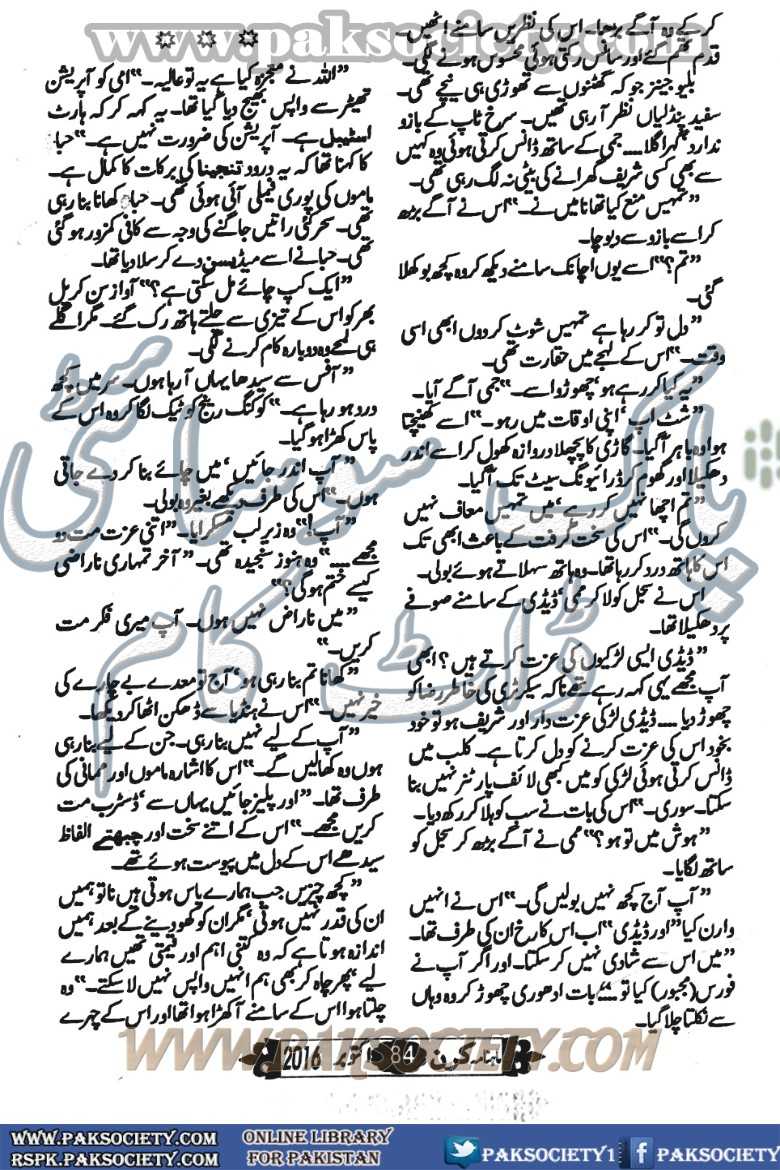 www.paksociety.com
کر کے وہ آگے بڑھا۔ اس کی نظریں سامنے اٹھیں۔
قدم تھم گئے اور سانس رکتی ہوئی محسوس ہونے لگی۔
بلیو جینز جو کہ گھٹنوں سے تھوڑی ہی نیچے تھی۔
سفید پنڈلیاں نظر آ رہی تھیں۔ سرخ ٹاپ کے بازو
ندارد‘ گہرا گلا.... جمی کے ساتھ ڈانس کرتی ہوئی وہ کہیں
سے بھی کسی شریف گھرانے کی بیٹی نہ لگ رہی تھی۔
”تمہیں منع کیا تھا نا میں نے۔“ اس نے آگے بڑھ
کر اسے بازو سے دبوچا۔
”تم؟“ اسے یوں اچانک سامنے دیکھ کر وہ کچھ بوکھلا
گئی۔
”دل تو کر رہا ہے تمہیں شوٹ کر دوں ابھی اسی
وقت۔“ اس کے لہجے میں حقارت تھی۔
”یہ کیا کر رہے ہو‘ چھوڑو اسے۔“ جمی آگے آیا۔
”شٹ اپ‘ اپنی اوقات میں رہو۔“ اسے کھینچتا
ہوا وہ باہر آ گیا۔ گاڑی کا پچھلا دروازہ کھول کر اسے اندر
دھکیلا اور گھوم کر ڈرائیونگ سیٹ تک آ گیا۔
”تم اچھا نہیں کر رہے‘ میں تمہیں معاف نہیں
کروں گی۔“ اس کی سخت گرفت کے باعث ابھی تک
اس کا ہاتھ درد کر رہا تھا۔ وہ ہاتھ سہلاتے ہوئے بولی۔
اس نے سجل کو لا کر ممی‘ ڈیڈی کے سامنے صوفے
پر دھکیلا تھا۔
”ڈیڈی ایسی لڑکیوں کی عزت کرتے ہیں؟ ابھی
آپ مجھے یہی کہہ رہے تھے نا کہ سیکرٹری کی خاطر رضا کو
چھوڑ دیا.... ڈیڈی لڑکی عزت دار اور شریف ہو تو خود
بخود اس کی عزت کرنے کو دل کرتا ہے۔ کلب میں
ڈانس کرتی ہوئی لڑکی کو میں کبھی لائف پارٹنر نہیں بنا
سکتا۔ سوری۔“ اس کی بات نے سب کو ہلا کر رکھ دیا۔
”ہوش میں تو ہو؟“ ممی نے آگے بڑھ کر سجل کو
ساتھ لگایا۔
”آپ آج کچھ نہیں بولیں گی۔“ اس نے انہیں
وارن کیا ”اور ڈیڈی“ اب اس کا رخ ان کی طرف تھا۔
”میں اس سے شادی نہیں کر سکتا۔ اور اگر آپ نے
فورس (مجبور) کیا تو....“ بات ادھوری چھوڑ کر وہ وہاں
سے نکلتا چلا گیا۔
”اللہ نے معجزہ کیا ہے یہ تو عالیہ۔“ امی کو آپریشن
تھیٹر سے واپس بھیج دیا گیا تھا۔ یہ کہہ کر کہ ہارٹ
اسٹیبل ہے۔ آپریشن کی ضرورت نہیں ہے۔“ حبا
کا کہنا تھا کہ یہ درود تنجینا کی برکات کا کمال ہے۔
ماموں کی پوری فیملی آئی ہوئی تھی۔ حبا، کھانا بنا رہی
تھی۔ سحر کئی راتیں جاگنے کی وجہ سے کافی کمزور ہو گئی
تھی۔ حبا نے اسے میڈیسن دے کر سلا دیا تھا۔
”ایک کپ چائے مل سکتی ہے؟“ آواز سن کر پل
بھر کو اس کے تیزی سے چلتے ہاتھ رک گئے۔ مگر اگلے
ہی لمحے وہ دوبارہ کام کرنے لگی۔
”آفس سے سیدھا یہاں آ رہا ہوں۔ سر میں کچھ
درد ہو رہا ہے۔“ کوکنگ رینج کو ٹیک لگا کر وہ اس کے
پاس کھڑا ہو گیا۔
”آپ اندر جائیں‘ میں چائے بنا کر دے جاتی
ہوں۔“ اس کی طرف دیکھے بغیر وہ بولی۔
”آپ!“ وہ زیر لب مسکرایا۔ ”اتنی عزت مت دو
مجھے....“ وہ ہنوز سنجیدہ تھی۔ ”آخر تمہاری ناراضی
کیسے ختم ہو گی؟“
”میں ناراض نہیں ہوں۔ آپ میری فکر مت
کریں۔“
”کھانا تم بنا رہی ہو‘ آج تو معدے بے چارے کی
خیر نہیں۔“ اس نے ہنڈیا سے ڈھکن اٹھا کر دیکھا۔
”آپ کے لیے نہیں بنا رہی۔ جن کے لیے بنا رہی
ہوں وہ کھا لیں گے۔“ اس کا اشارہ ماموں اور ممانی کی
طرف تھا۔ ”اور پلیز جائیں یہاں سے‘ ڈسٹرب مت
کریں مجھے۔“ اس کے اتنے سخت اور چبھتے الفاظ
سیدھے اس کے دل میں پیوست ہوئے تھے۔
”کچھ چیزیں جب ہمارے پاس ہوتی ہیں نا تو ہمیں
ان کی قدر نہیں ہوتی‘ مگر ان کو کھو دینے کے بعد ہمیں
اندازہ ہوتا ہے کہ وہ کتنی اہم اور قیمتی تھیں ہمارے
لیے‘ پھر چاہ کر بھی ہم انہیں واپس نہیں لا سکتے۔“ وہ
چلتا ہوا اس کے سامنے آ کھڑا ہوا تھا اور اس کے چہرے
پاک سوسائٹی
ڈاٹ کام
ماہنامہ کرن 84 اکتوبر 2016
WWW.PAKSOCIETY.COM
WWW.PAKSOCIETY.COM
RSPK.PAKSOCIETY.COM
ONLINE LIBRARY
FOR PAKISTAN
PAKSOCIETY1
PAKSOCIETY